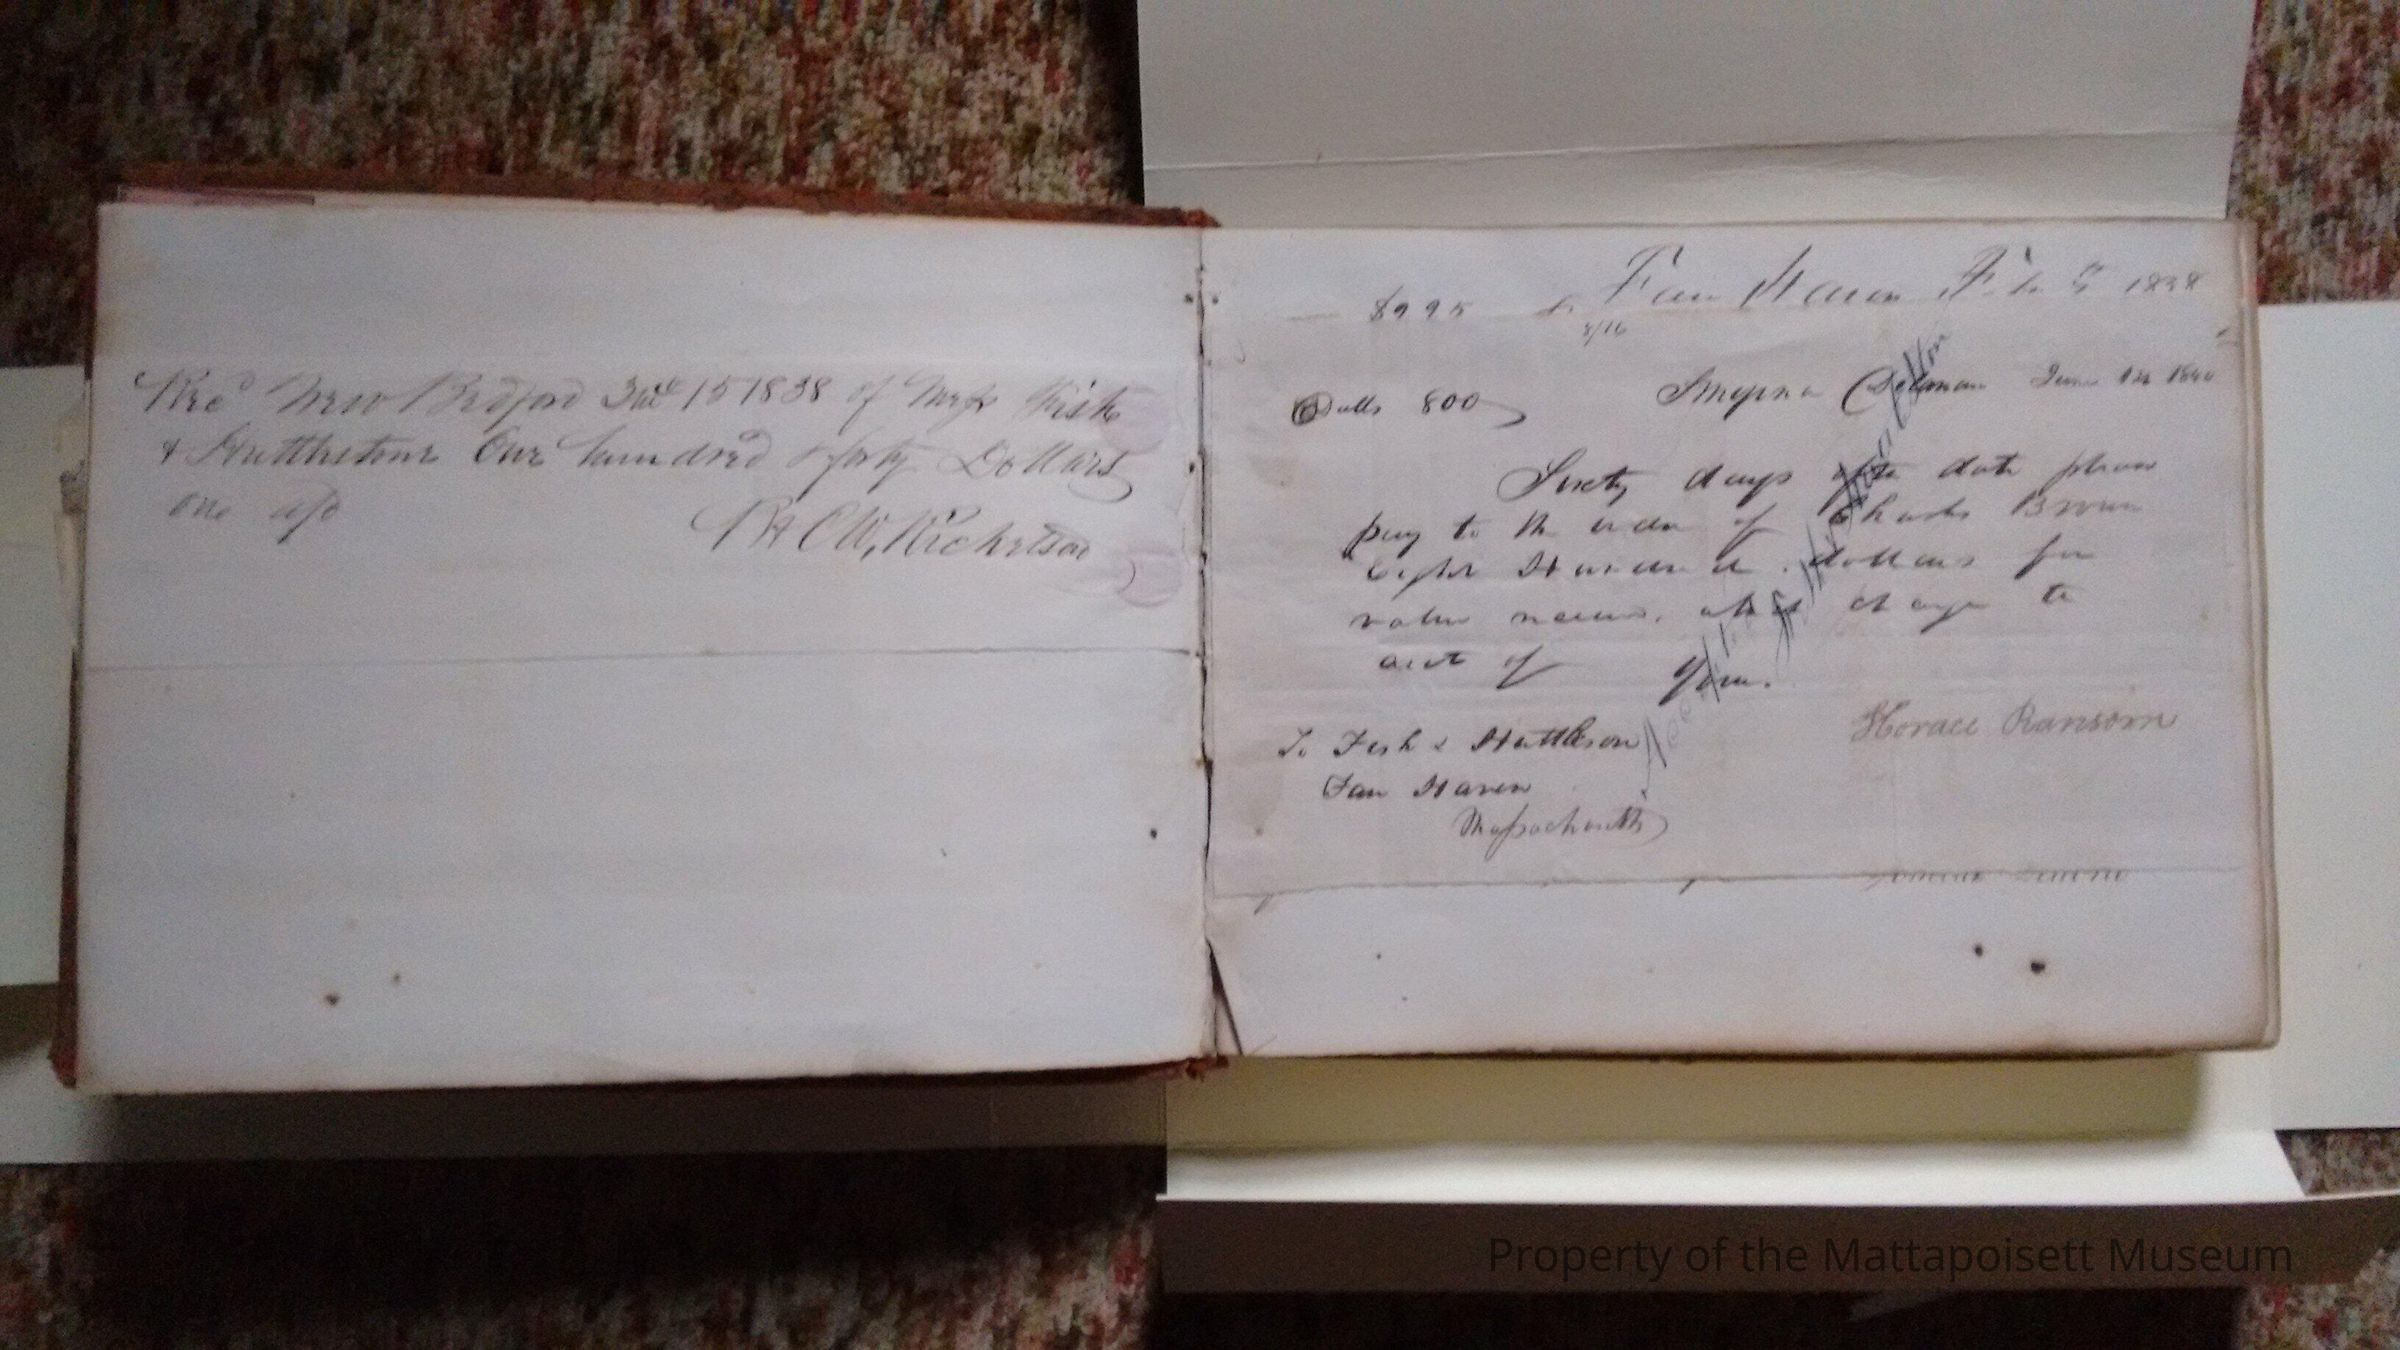 Rec'd New Bedford 15 1838 of Messrs Fish
& Huttlestone One hundred & forty Dollars
on a/c
R & C W, Ricketson
$995 Fair Haven Feb 5th 1838
8/16
Dolls 800 Smyrna June 1840
Sixty days after date please
pay to the order of Charles Brown
Eight Hundred dollars for
value received, and charge to
acct of Yours.
Horace Ransom
To Fish & Huttleson
Fair Haven
Massachusetts
Property of the Mattapoisett Museum